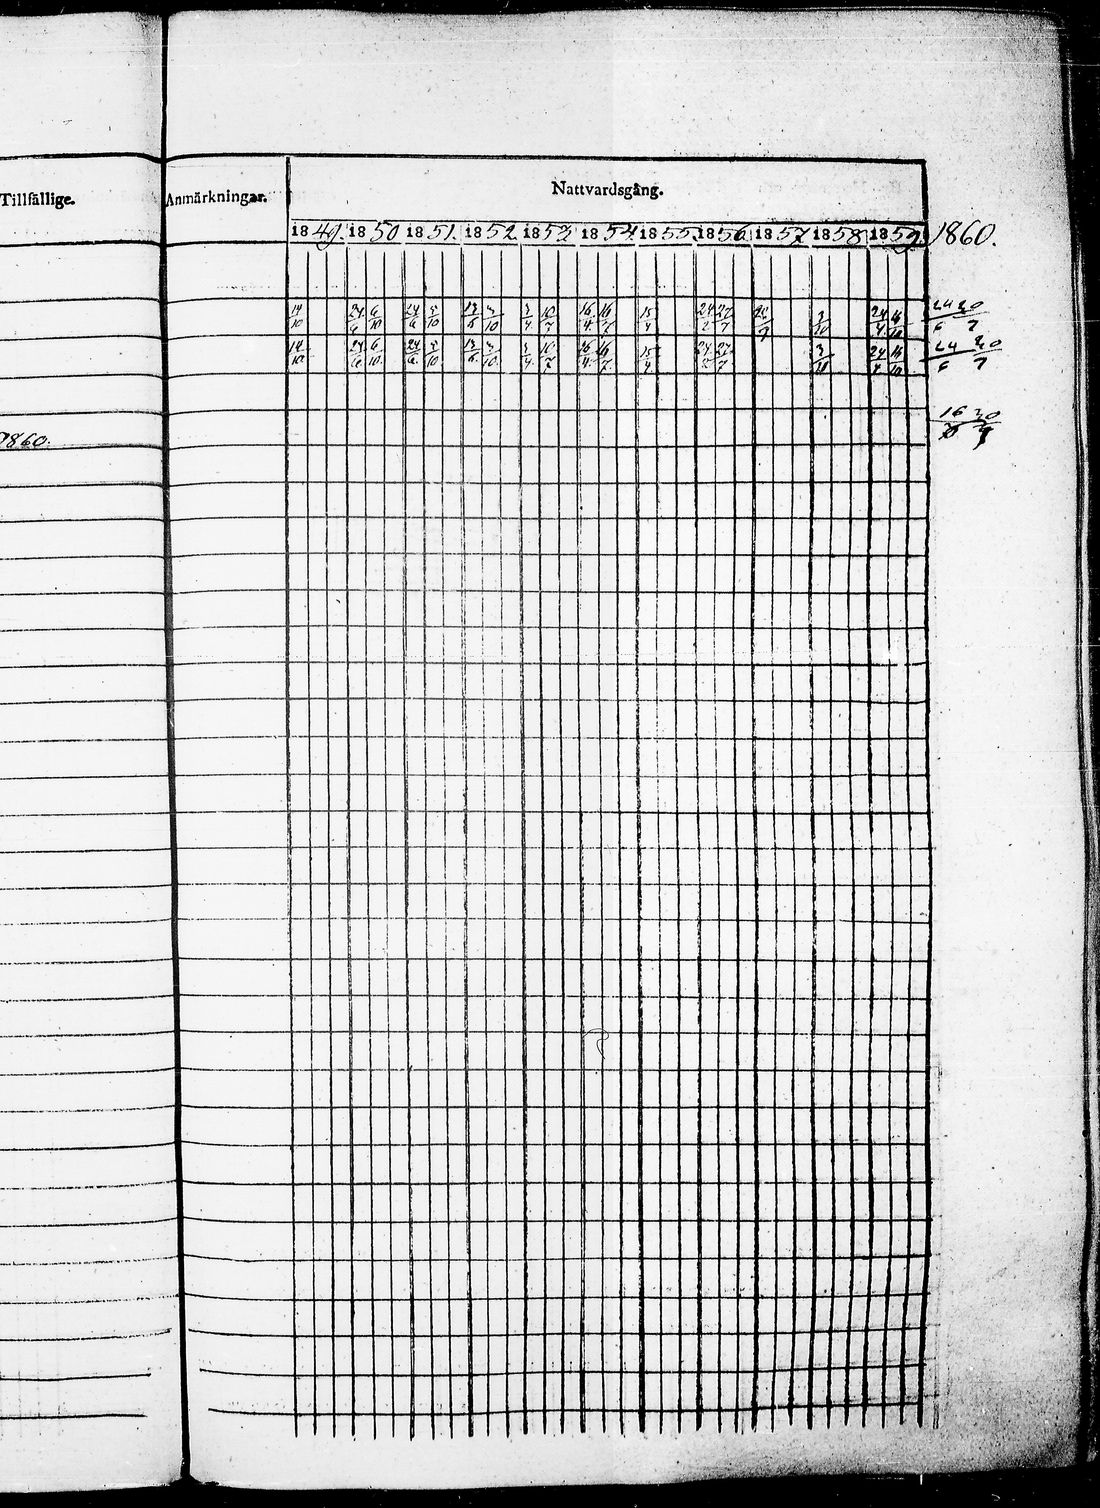 Tillfällige. Anmärkningar. Nattvardsgång.
1849. 1850 1851. 1852. 1853 1854. 1855. 1856. 1857. 1858. 1859. 1860.
14/10 24/6 6/10 24/6 5/10 13/6 3/10 3/4 10/7 16/4 16/7 15/4 24/2 27/7 3/10 24/4 16/10 24/6 20/7
14/10 24/6 6/10 24/6 5/10 13/6 3/10 3/4 10/7 16/4 16/7 15/4 24/2 27/7 3/10 24/4 16/10 24/6 20/7
1860.